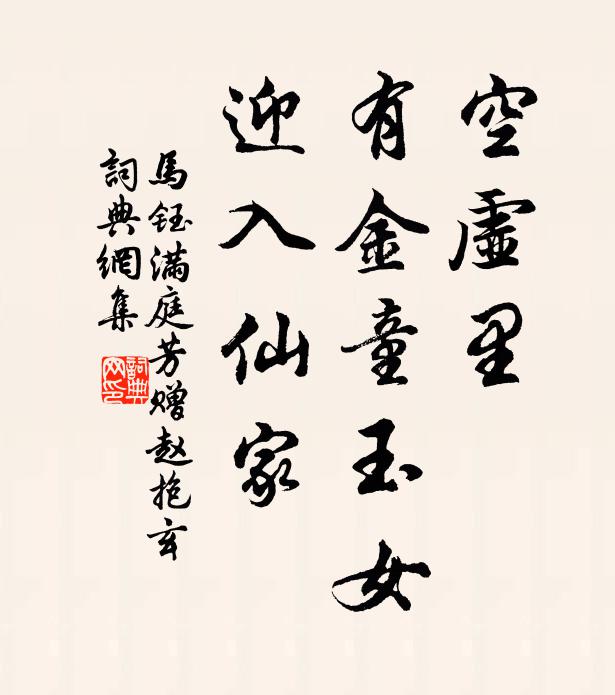 空虛里
有金童玉女
迎入仙家
馬鈺滿庭芳赠赵抱玄
詞典網集
詞典網印